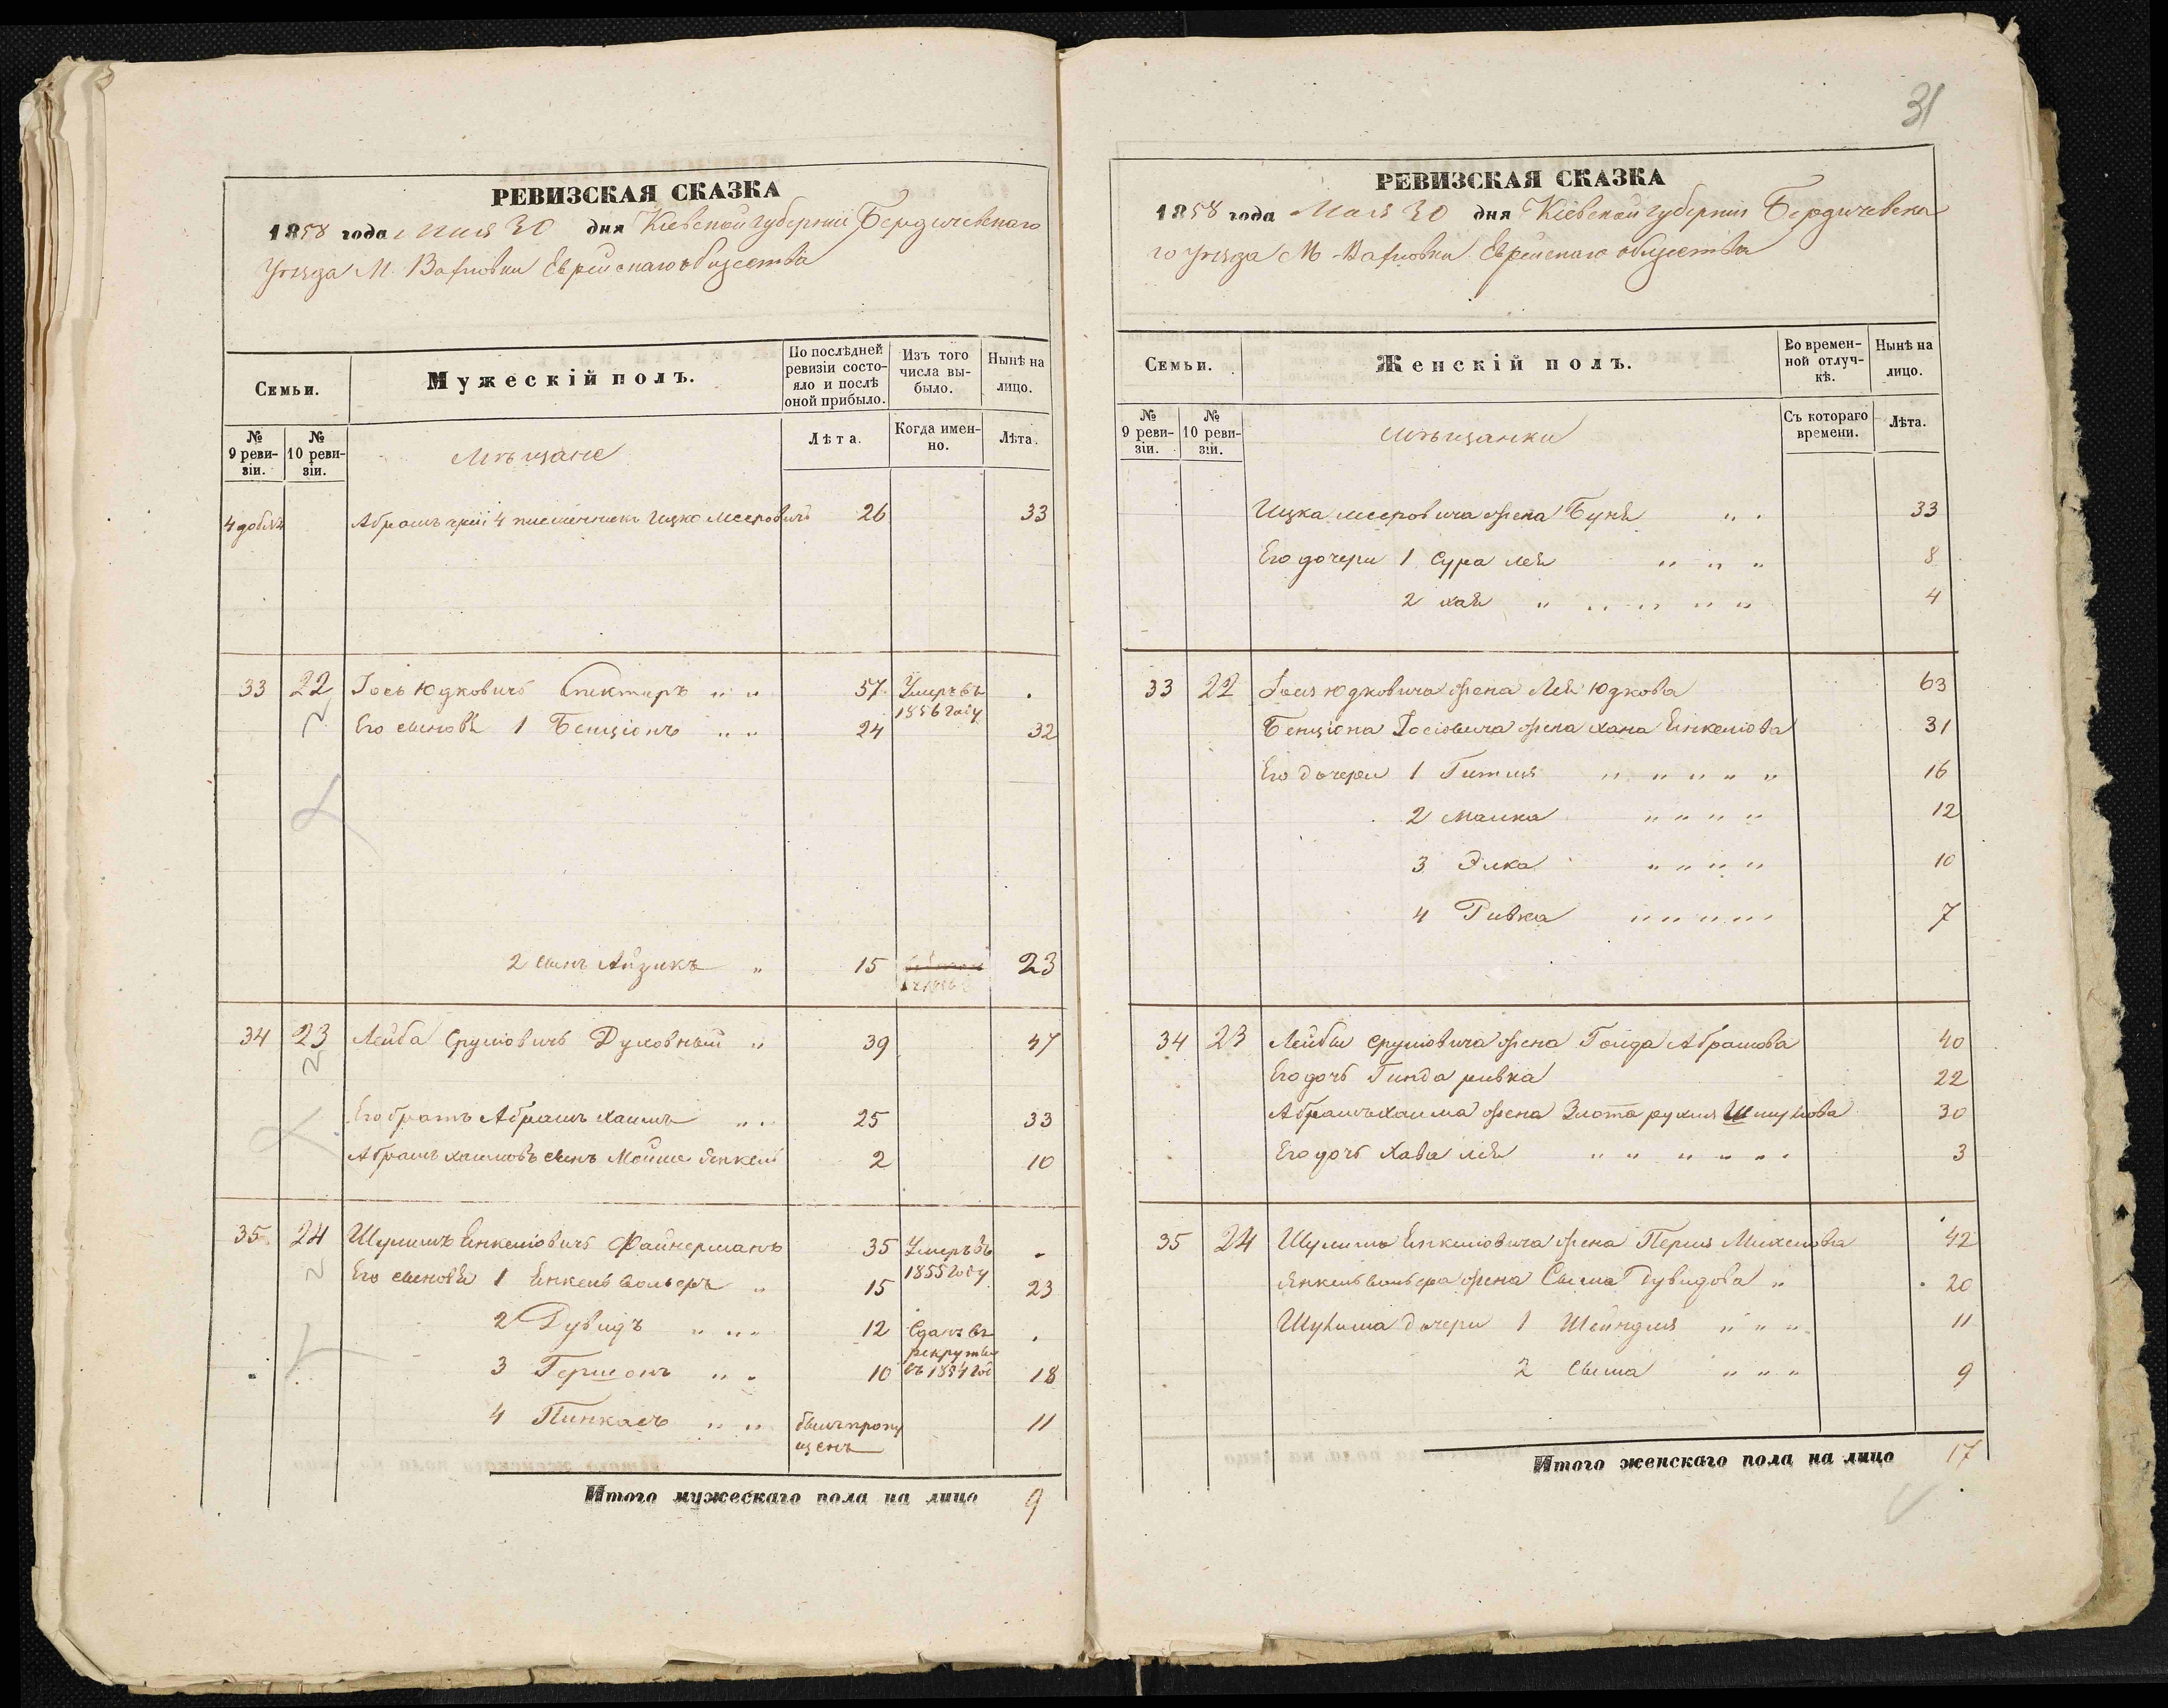 РЕВИЗСКАЯ СКАЗКА
1858 года Мая 30 дня Кіевской губерніи Бердичевскаго
Уѣзда М. Вахновки Еврейскаго общества
Семьи.
Мужескій полъ.
По послѣдней ревизіи состояло и послѣ оной прибыло.
Изъ того числа выбыло.
Нынѣ на лицо.
№ 9 ревизіи.
№ 10 ревизіи.
Мѣщане
Лѣта.
Когда именно.
Лѣта.
Абрамъ 4 племенникъ Ицко Мееровичъ 26 33
33 22 Іось Юдковичъ Спикторъ " " 57 Умеръ въ 1856 году .
Его сыновя 1 Бенціонъ " " 24 32
2 сынъ Айзикъ " 15 23
34 23 Лейба Срулiовичъ Духовный " 39 47
Его братъ Абрамъ Хаимъ " " 25 33
Абрамъ Хаимовъ сынъ Мойше Янкель 2 10
35 24 Шулимъ Енкелiовичъ Файнерманъ 35 Умеръ въ 1855 году .
Его сыновя 1 Енкель Вольверъ " 15 23
2 Дувидъ " " " 12 Сданъ въ рекруты въ 1854 год .
3 Гершонъ " " 10 18
4 Пинкасъ " " былъ пропущенъ 11
Итого мужескаго пола на лицо 9
31
РЕВИЗСКАЯ СКАЗКА
1858 года Мая 30 дня Кіевской губерніи Бердичевска
го Уѣзда М. Вахновки Еврейскаго общества
Семьи.
Женскій полъ.
Во временной отлучкѣ.
Нынѣ на лицо.
№ 9 ревизіи.
№ 10 ревизіи.
Мѣщанки
Съ котораго времени.
Лѣта.
Ицка Мееровича жена Буня " " 33
Его дочери 1 Сура Лея " " " 8
2 Хая " " " " " 4
33 22 Іося Юдковича жена Лея Юдкова 63
Бенціона Іосіовича жена Хана Енкеліова 31
Его дочери 1 Гитля " " " " " 16
2 Малка " " " " 12
3 Элка " " " " 10
4 Ривка " " " " " 7
34 23 Лейбы Срулiовича жена Голда Абрамова 40
Его дочь Гинда Ривка 22
Абрамъ Хаима жена Злота Рухля Шмулова 30
Его дочь Хава Лея " " " " " " 3
35 24 Шулима Енкелiовича жена Перля Михелова 42
Янкель Вольвера жена Сыма Дувидова " 20
Шулима дочери 1 Шейндля " " " 11
2 Сыма " " " 9
Итого женскаго пола на лицо 17